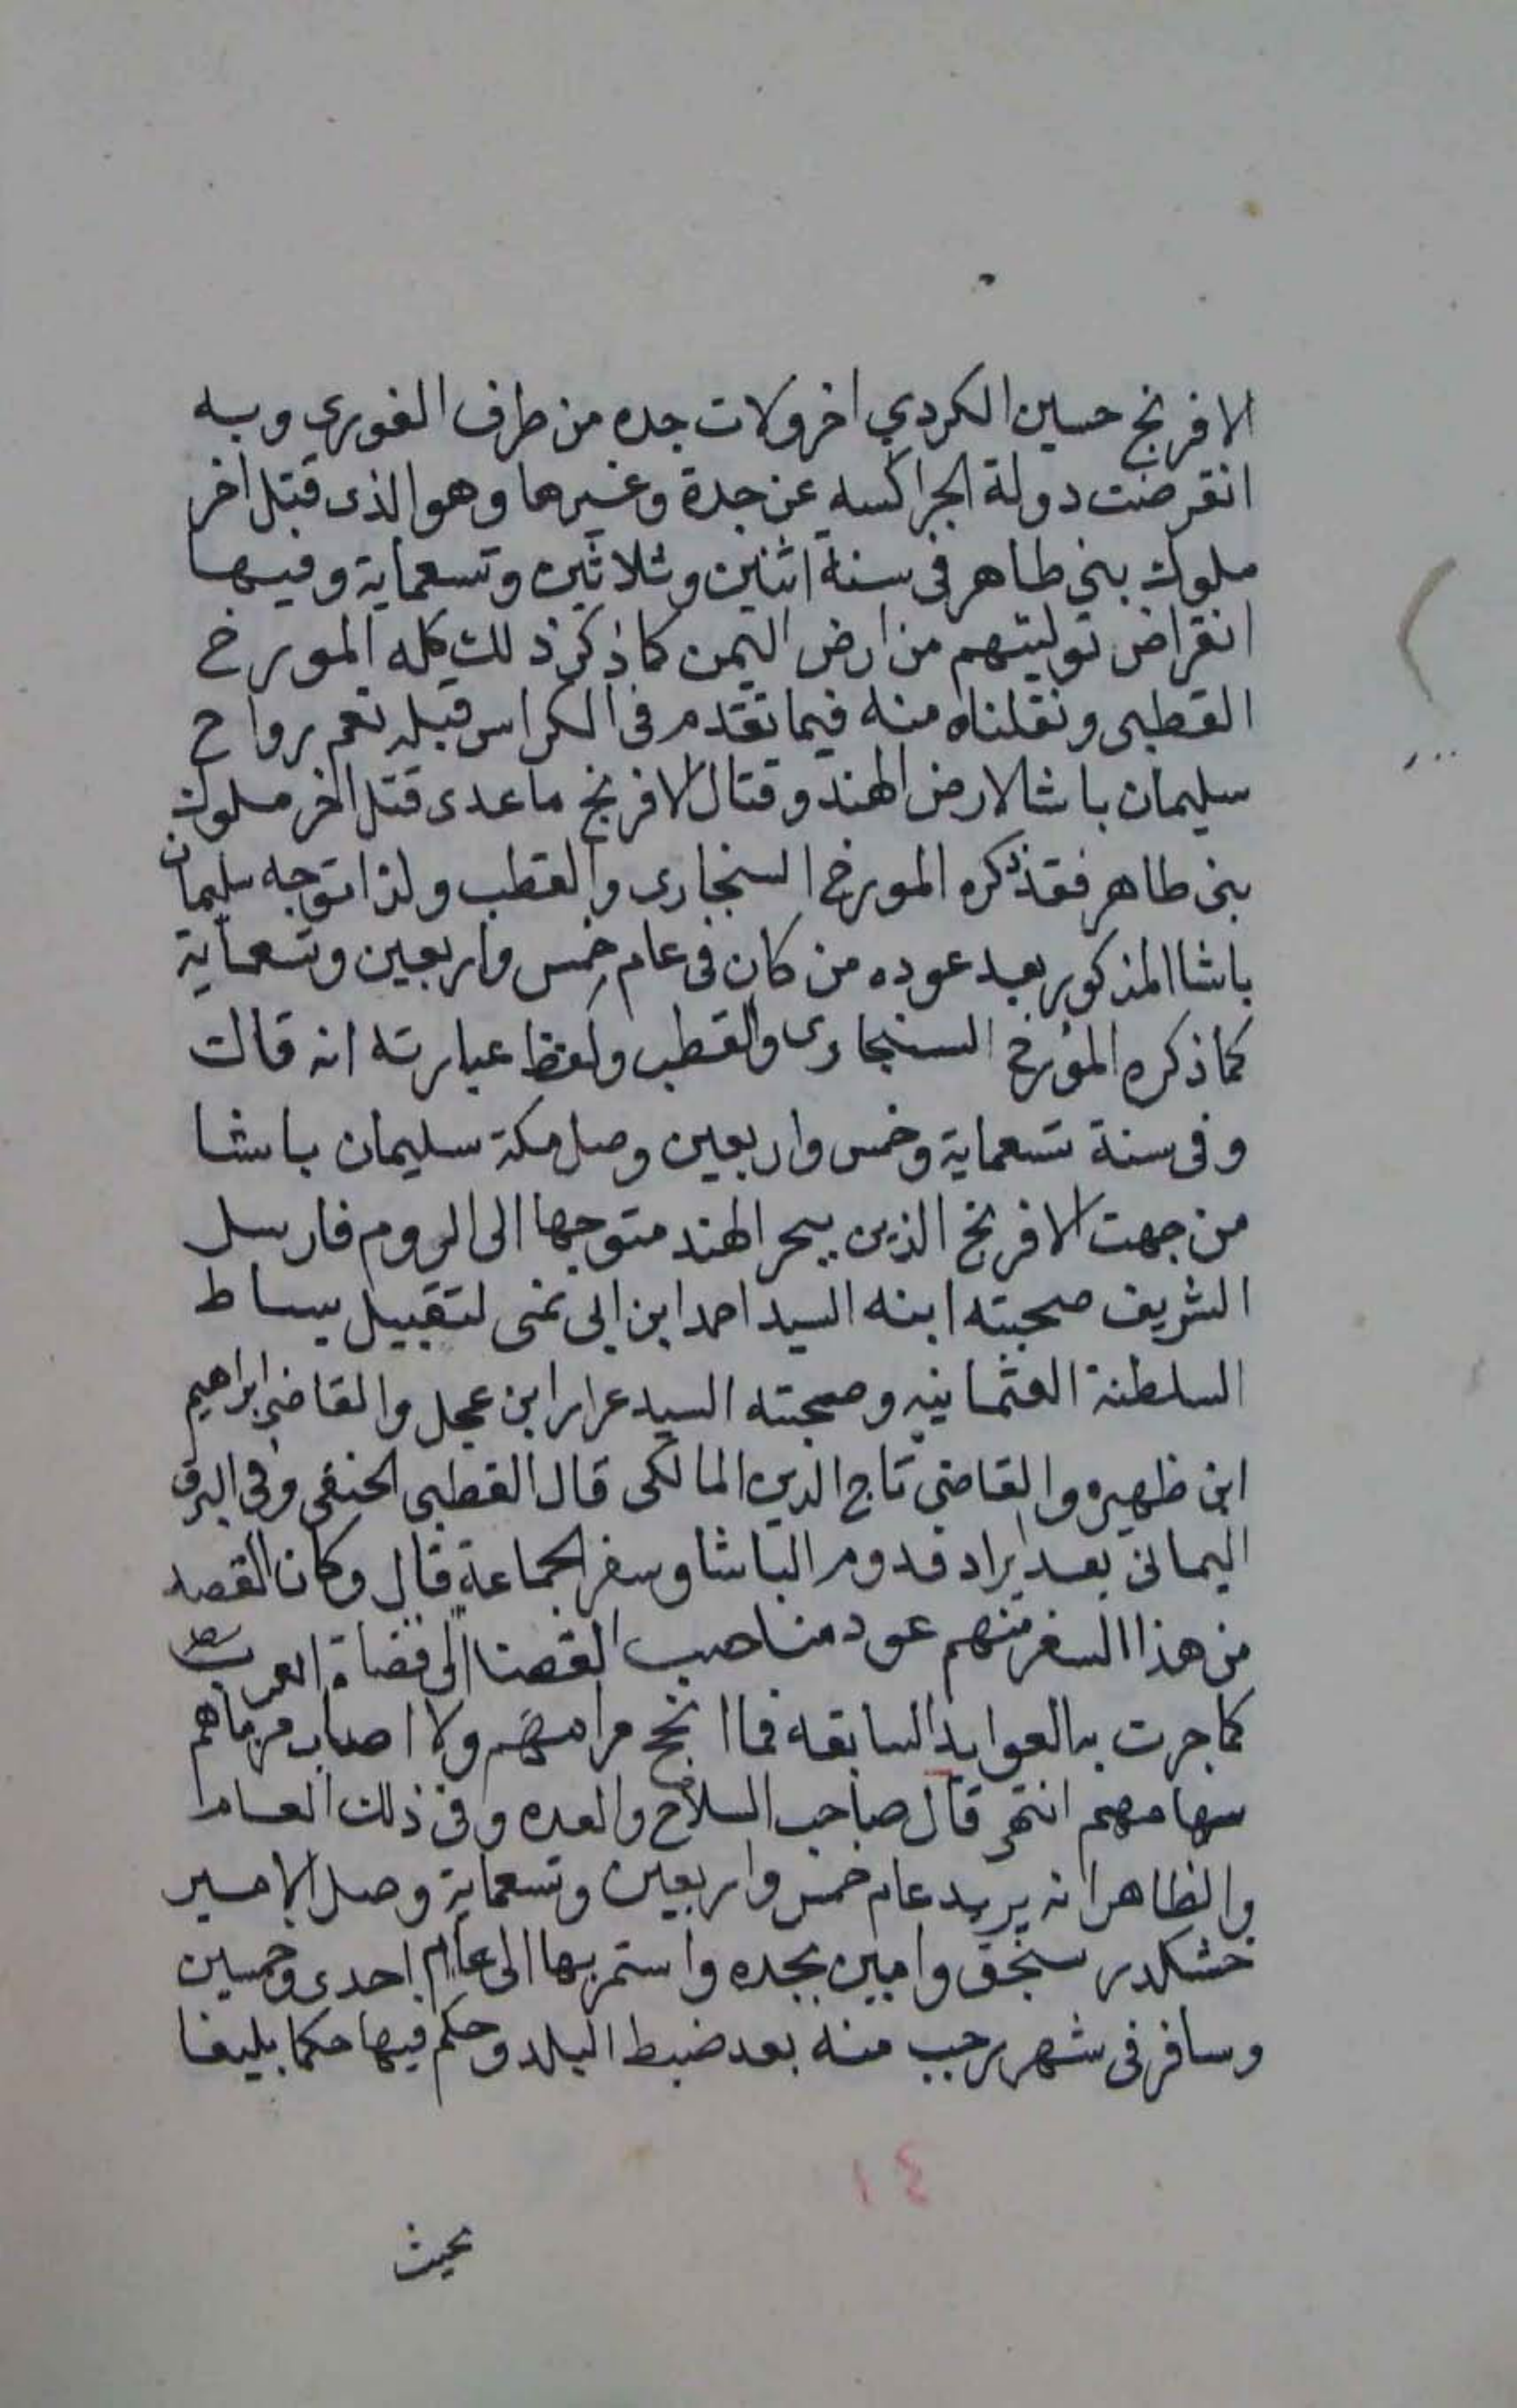 الافرنج حسين الكردي اخر ولات جده من طرف الغوري وبه
انقرضت دولة الجراكسه عن جدة وغيرها وهو الذى قتل اخر
ملوك بنى طاهر فى سنة اثنين وثلاثين وتسعماية وفيها
انقراض توليتهم من ارض اليمن كما ذكر ذلك كله المورخ
القطبى ونقلناه منه فيما تقدم فى الكراس قبله نعم رواح
سليمان باشا لارض الهند وقتال الافرنج ماعدى قتل اخر ملوك
بنى طاهر فقد ذكره المورخ السنجارى والقطب ولذا توجه سليمان
باشا المذكور بعد عوده من كان فى عام خمس واربعين وتسعماية
كما ذكره المؤرخ السنجارى والقطب ولفظ عبارته انه قالت
وفى سنة تسعماية وخمس واربعين وصل مكة سليمان باشا
من جهت الافرنج الذين ببحر الهند متوجها الى الروم فارسل
الشريف صحبته ابنه السيد احمد ابن ابى نمى لتقبيل بساط
السلطنة العثمانيه وصحبته السيد عرار ابن عجل والقاضى ابراهيم
ابن ظهيره والقاضى تاج الدين المالكى قال القطبى الحنفى وفى البرق
اليمانى بعد ايراد قدوم الباشا وسفر الجماعة قال وكان القصد
من هذا السفر منهم عود مناصب القضا الى قضاة العرب
كما جرت به العوايد السابقه فما انجح مرامهم ولا اصاب مرماهم
سهامهم انتهى قال صاحب السلاح والعده وفى ذلك العام
والظاهر انه يريد عام خمس واربعين وتسعماية وصل الامير
خشكلدى سنجق وامين بجده واستمر بها الى عام احدى وخمسين
وسافر فى شهر رجب منه بعد ضبط البلد وحكم فيها حكما بليغا
١٤
بحيث